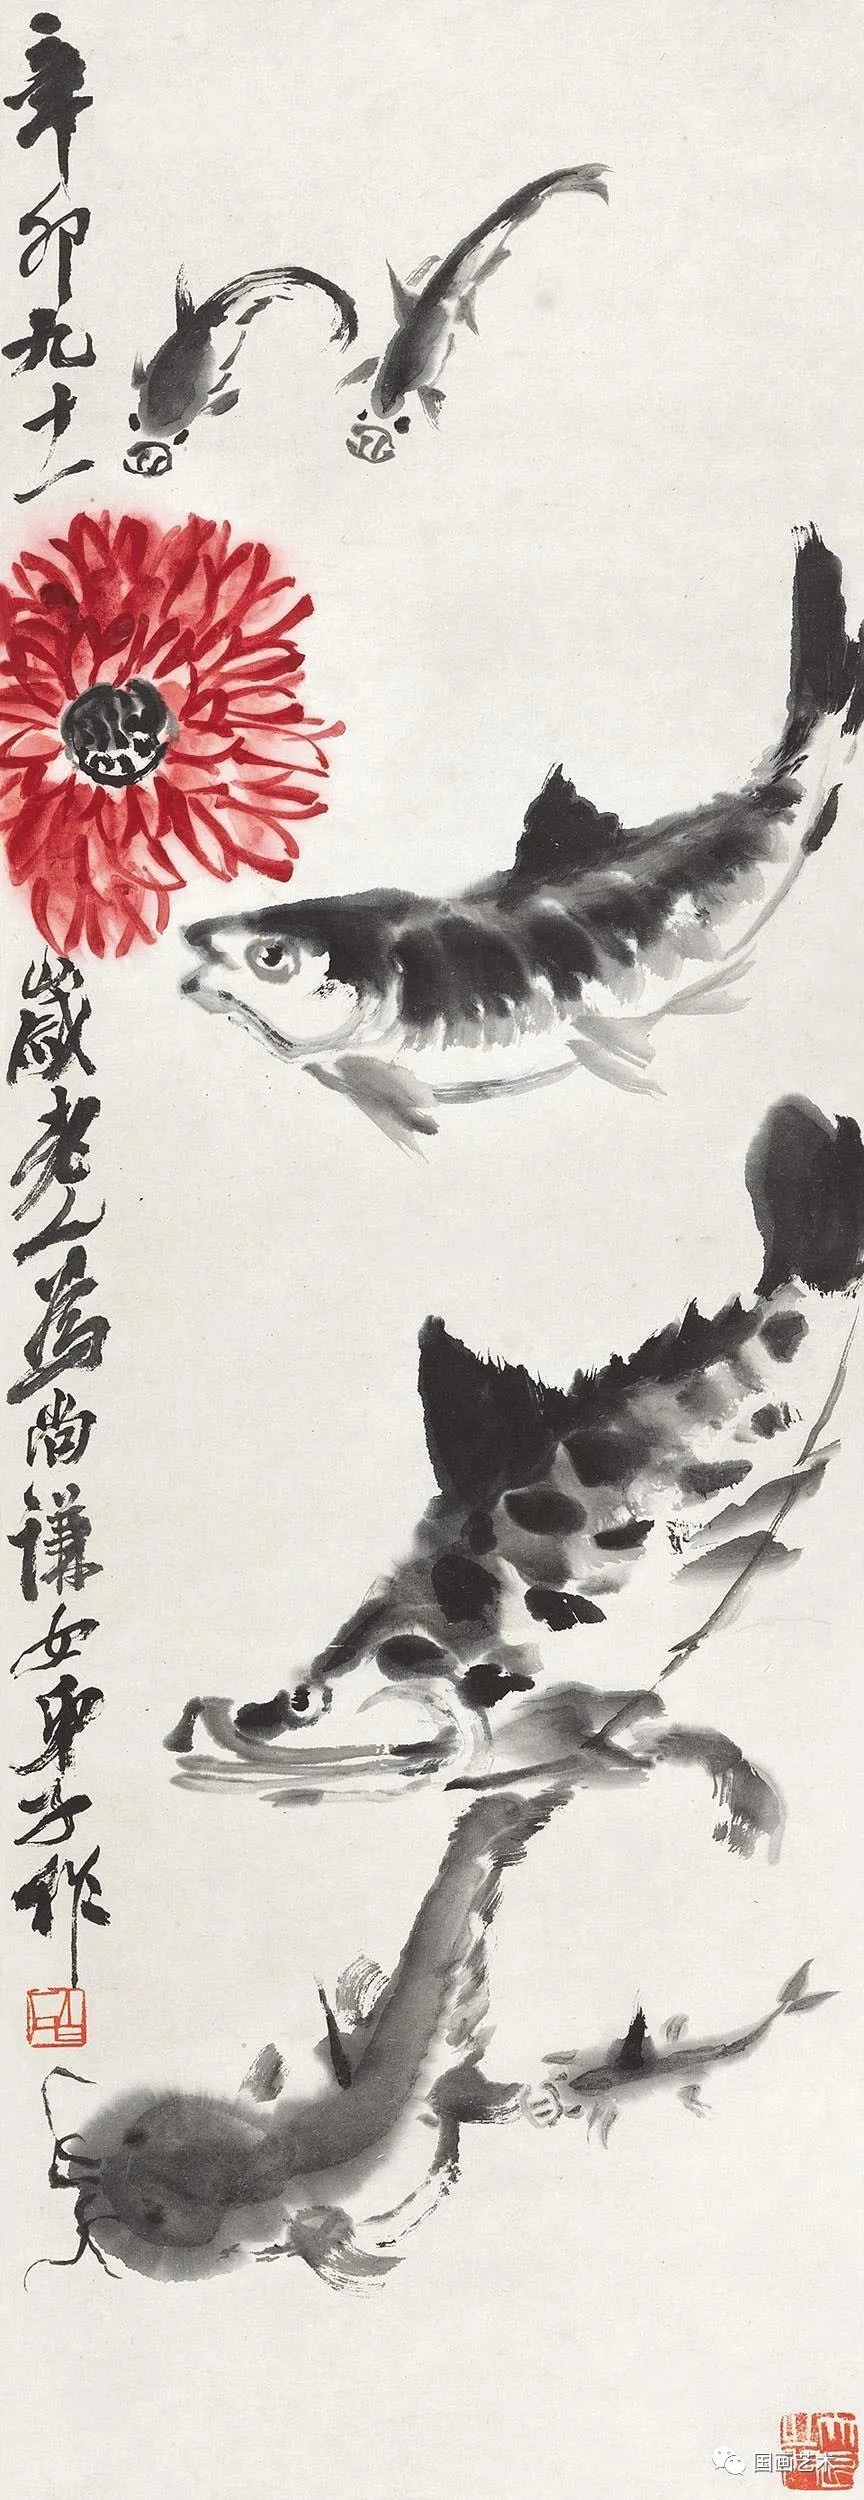 辛卯九十一
歲老人為尚謙女弟子作
国画艺术